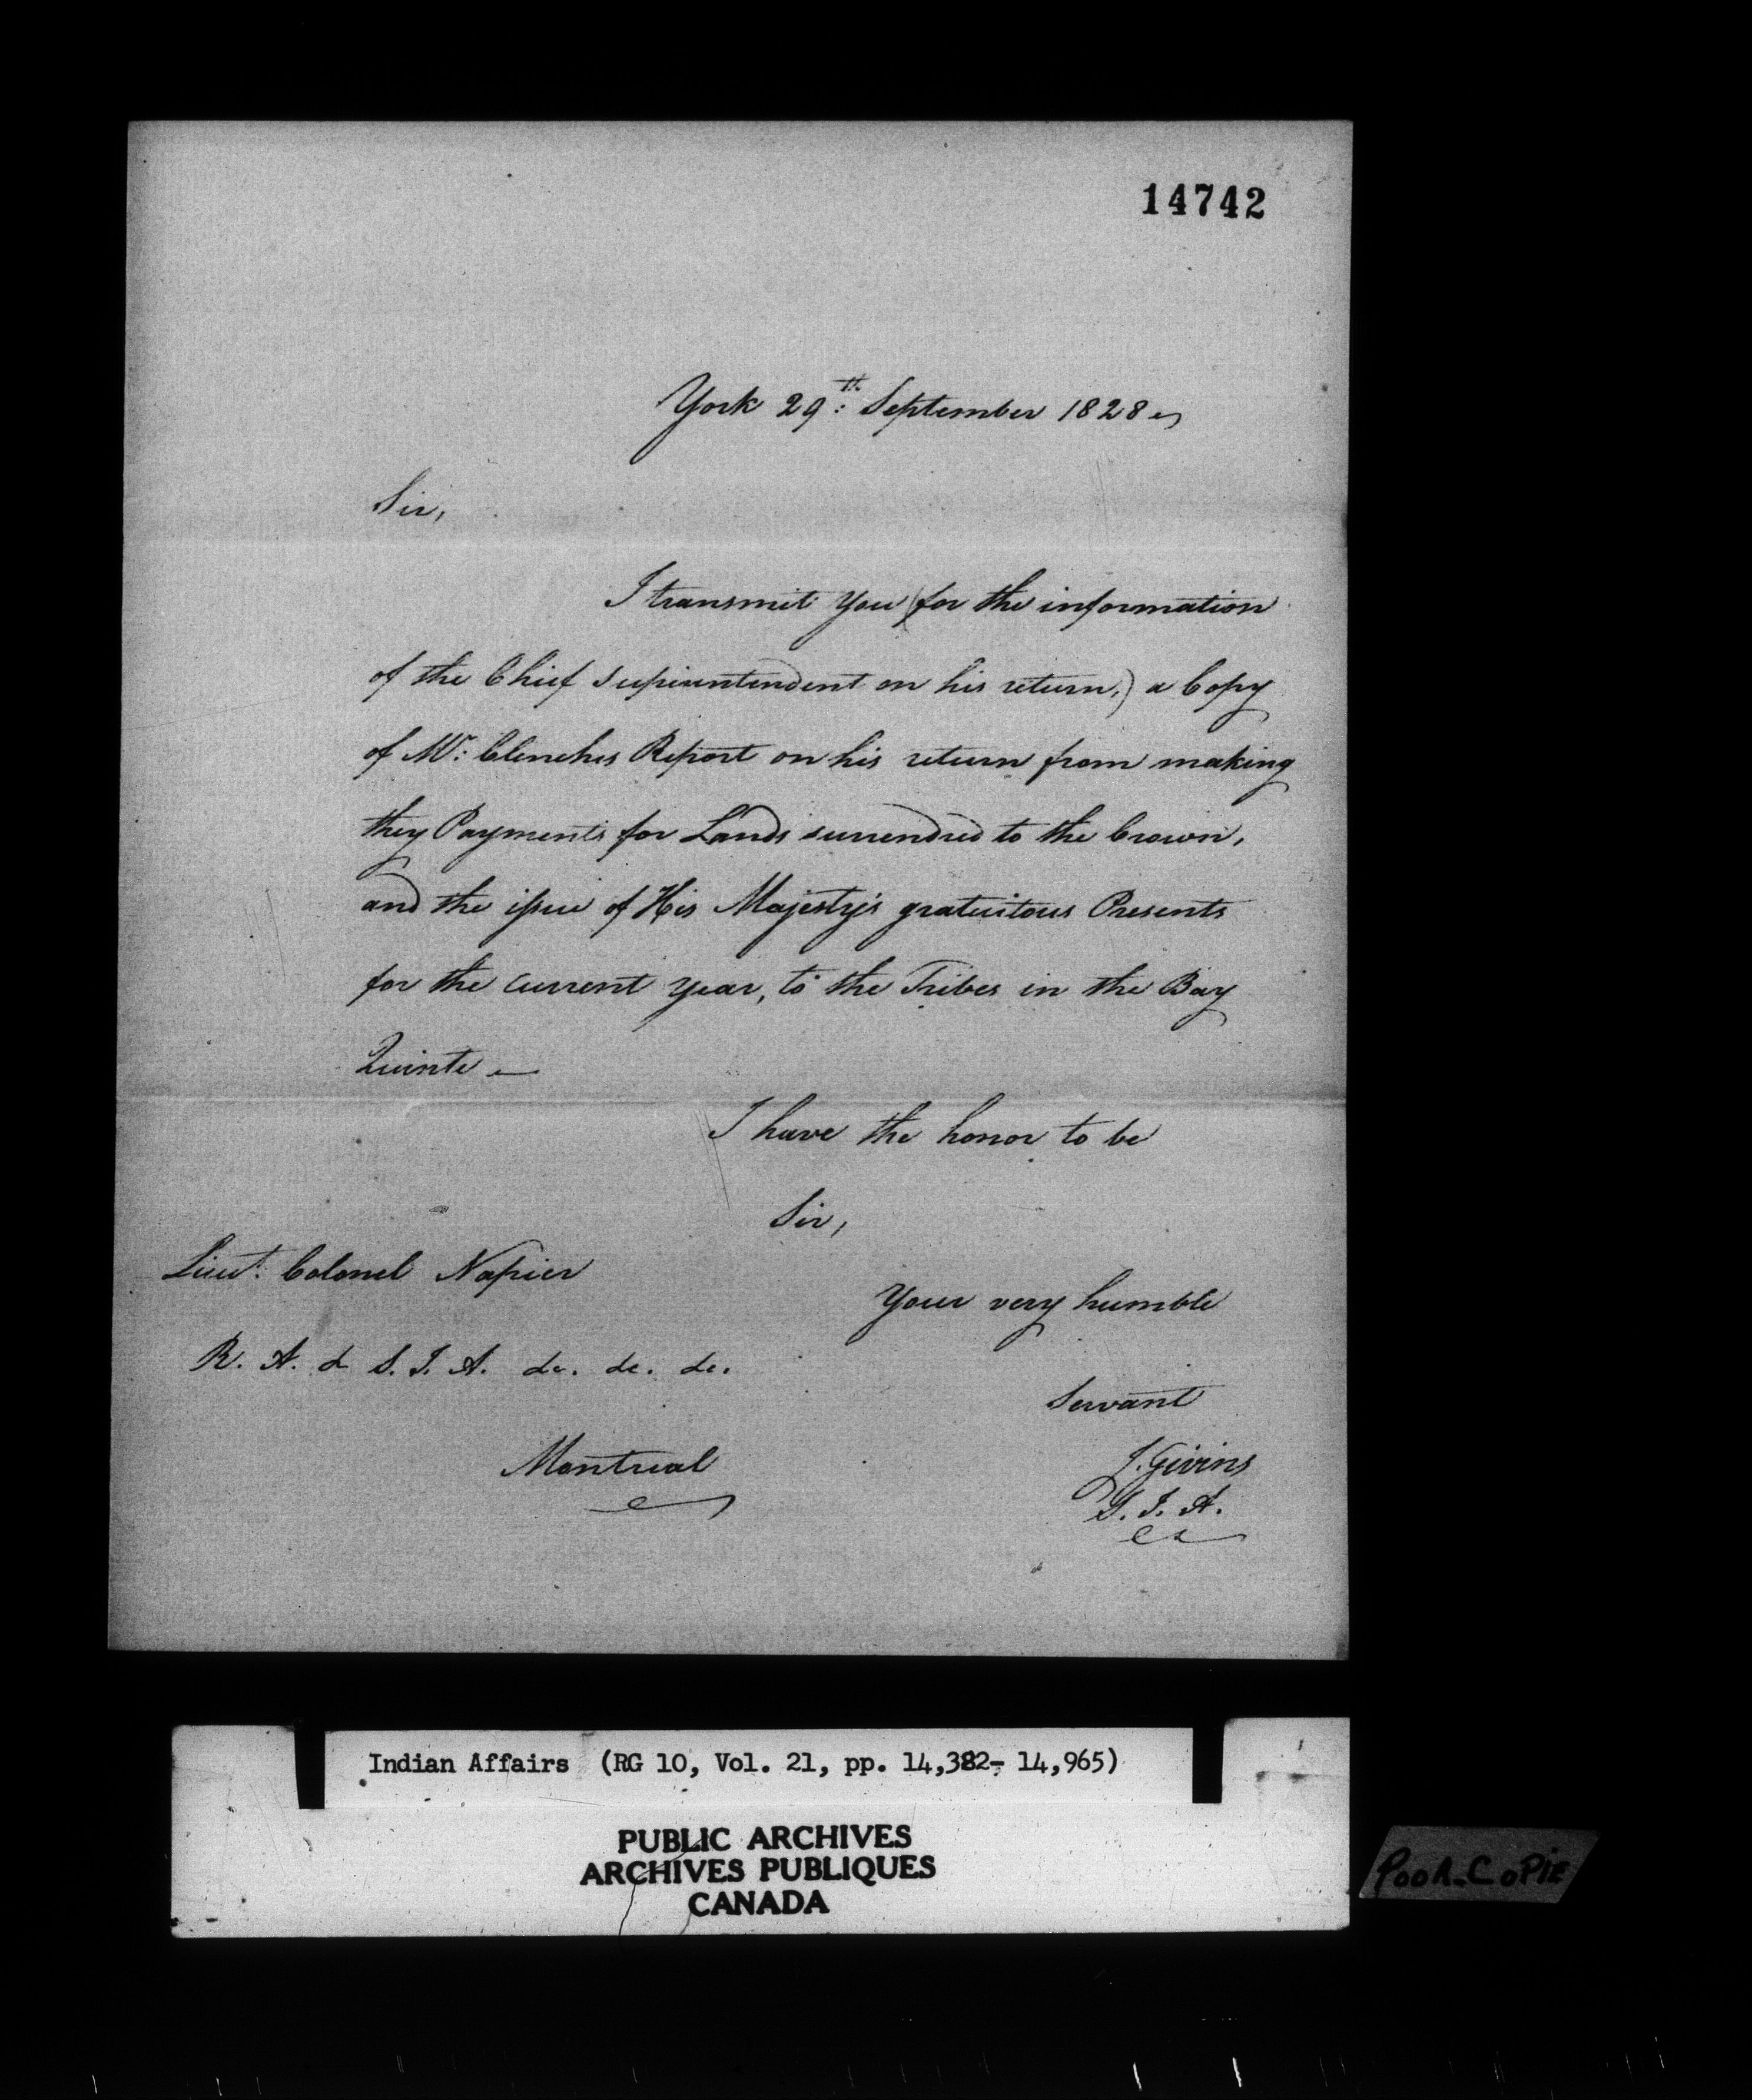 14742
York 29th: September 1828
Sir,
I transmit You (for the information
of the Chief Superintendent on his return,) a Copy
of Mr: Clenches Report on his return from making
they Payments for Lands surrendred to the Crown,
and the issue of His Majesty's gratuitous Presents
for the current Year, to the Tribes in the Bay
Quinte
I have the honor to be
Sir,
Lieut: Colonel Napier
Your very humble
R. A. & S. I. A. &c. &c. &c.
Servant
Montreal
J. Givins
S. I. A.
Indian Affairs (RG 10, Vol. 21, pp. 14,382- 14,965)
PUBLIC ARCHIVES
ARCHIVES PUBLIQUES
CANADA
POOR COPIE